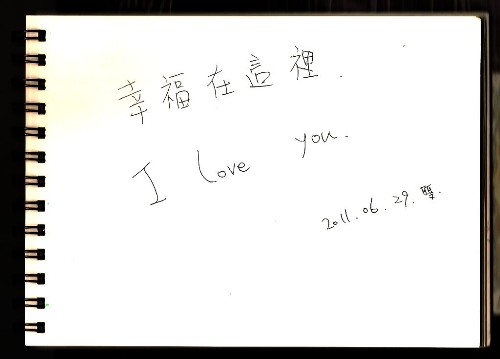 幸福在這裡.
I love you.
2011.06.29.